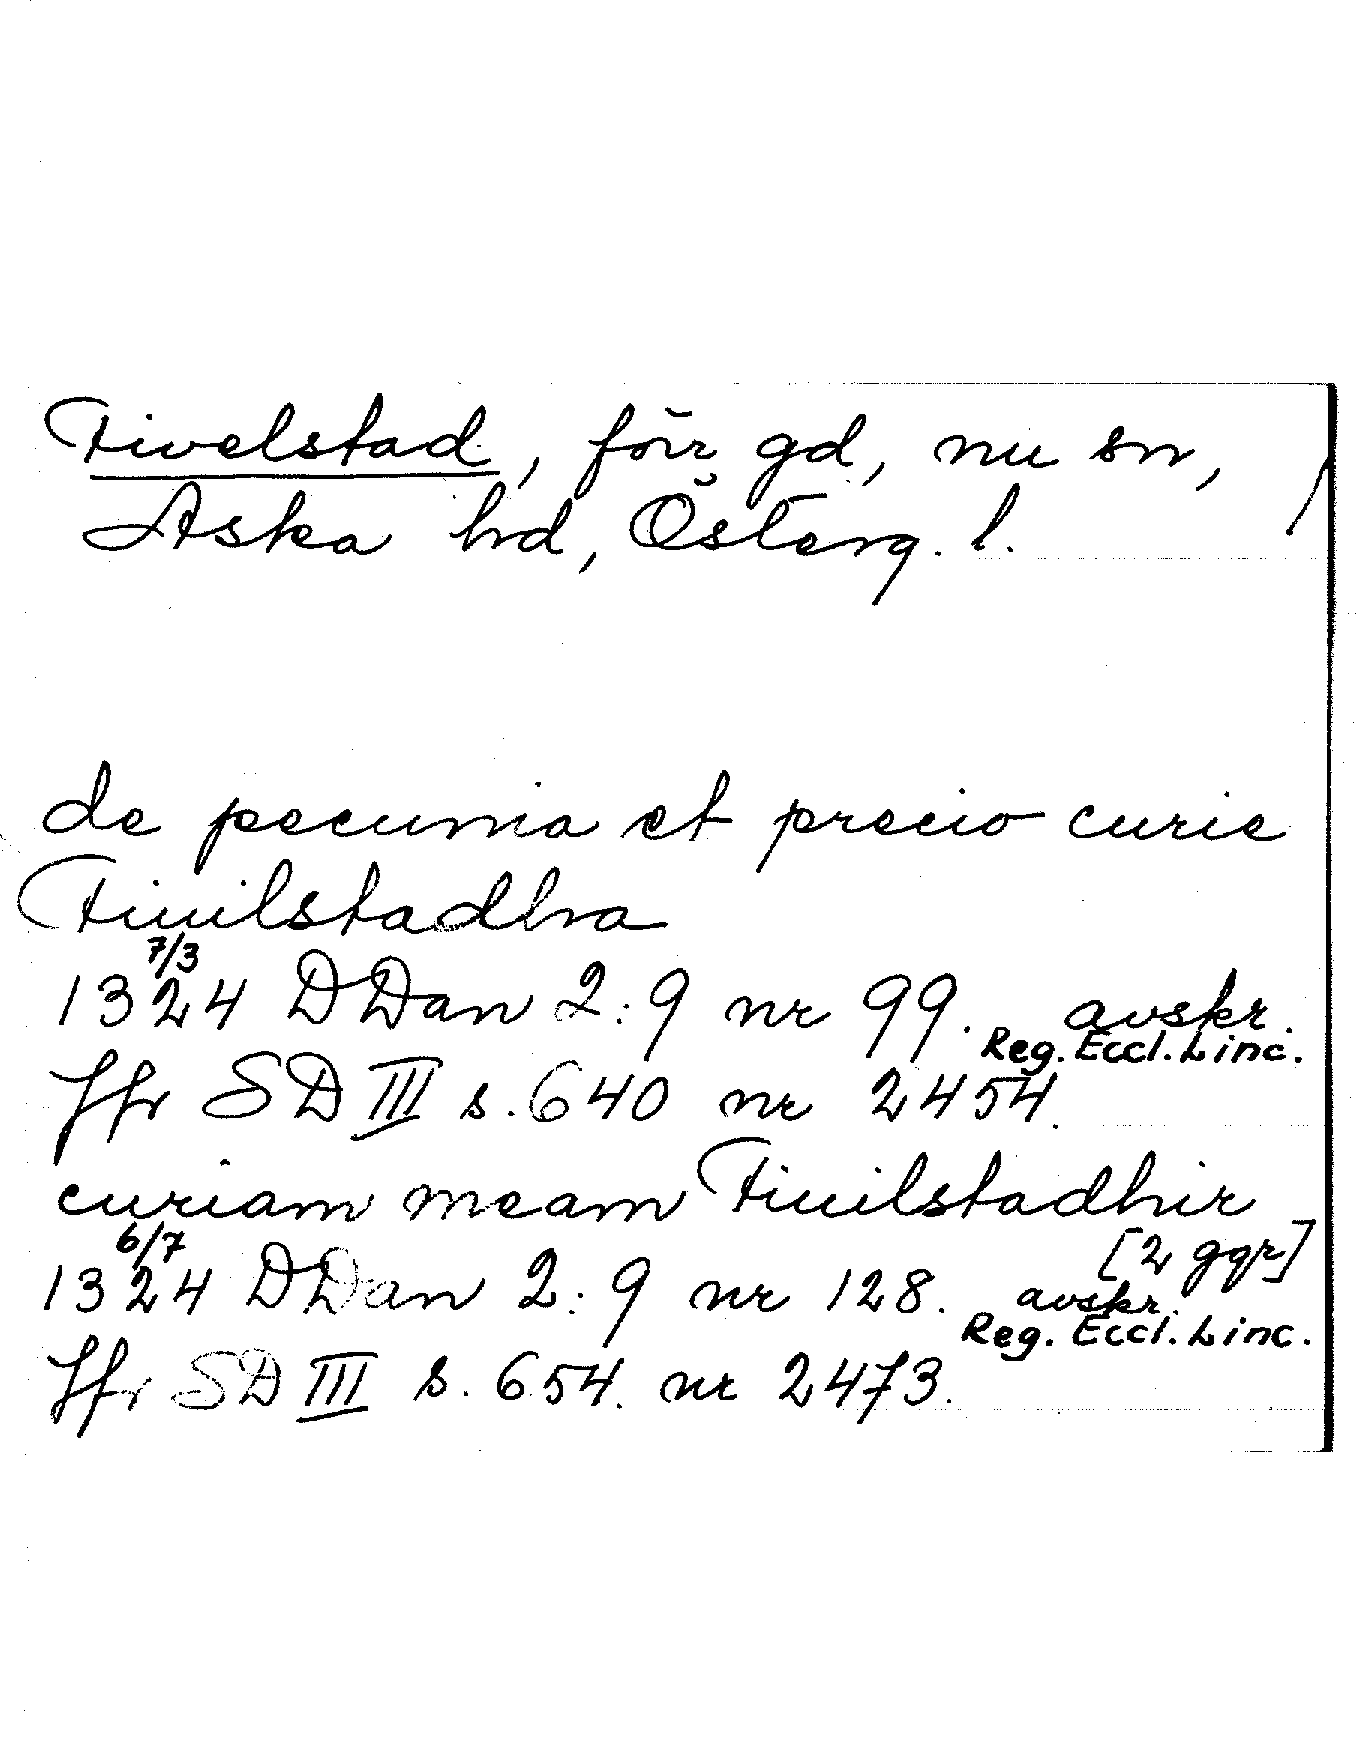 Fivelstad, förr gd, nu sn,
Aska hd, Österg. l.
de pecunia et precio curie
Fiuilstadhra
7/3
1324 DDan 2:9 nr 99. avskr.
Reg. Eccl. Linc.
Jfr SD III s. 640 nr 2454.
curiam meam Fiuilstadhir
[2 ggr]
6/7
1324 DDan 2:9 nr 128. avskr.
Reg. Eccl. Linc.
Jfr SD III s. 654. nr 2473.